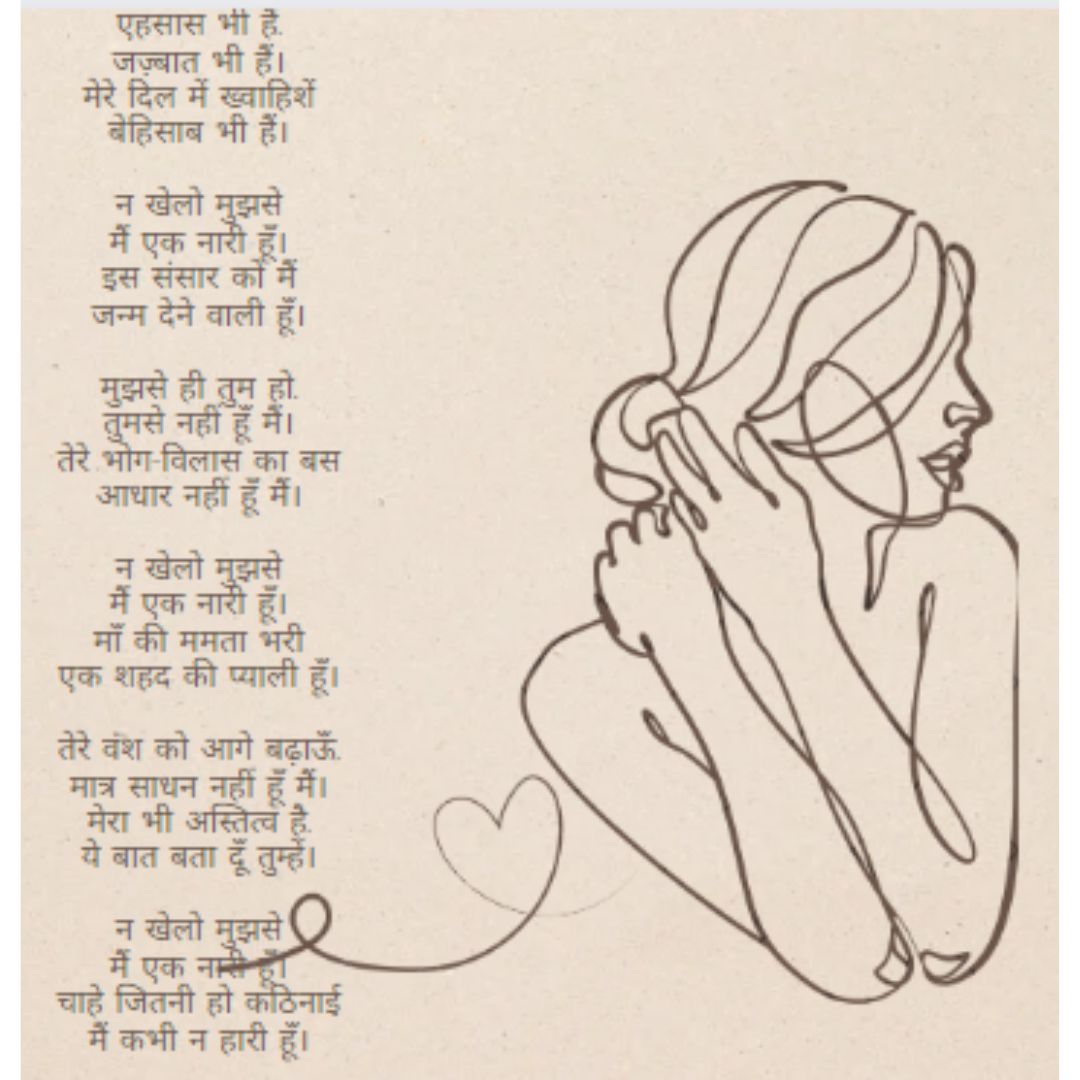 एहसास भी हैं.
जज़्बात भी हैं।
मेरे दिल में ख्वाहिशें
बेहिसाब भी हैं।
न खेलो मुझसे
मैं एक नारी हूँ।
इस संसार को मैं
जन्म देने वाली हूँ।
मुझसे ही तुम हो.
तुमसे नहीं हूँ मैं।
तेरे भोग-विलास का बस
आधार नहीं हूँ मैं।
न खेलो मुझसे
मैं एक नारी हूँ।
माँ की ममता भरी
एक शहद की प्याली हूँ।
तेरे वंश को आगे बढ़ाऊँ.
मात्र साधन नहीं हूँ मैं।
मेरा भी अस्तित्व है.
ये बात बता दूँ तुम्हें।
न खेलो मुझसे
मैं एक नारी हूँ।
चाहे जितनी हो कठिनाई
मैं कभी न हारी हूँ।